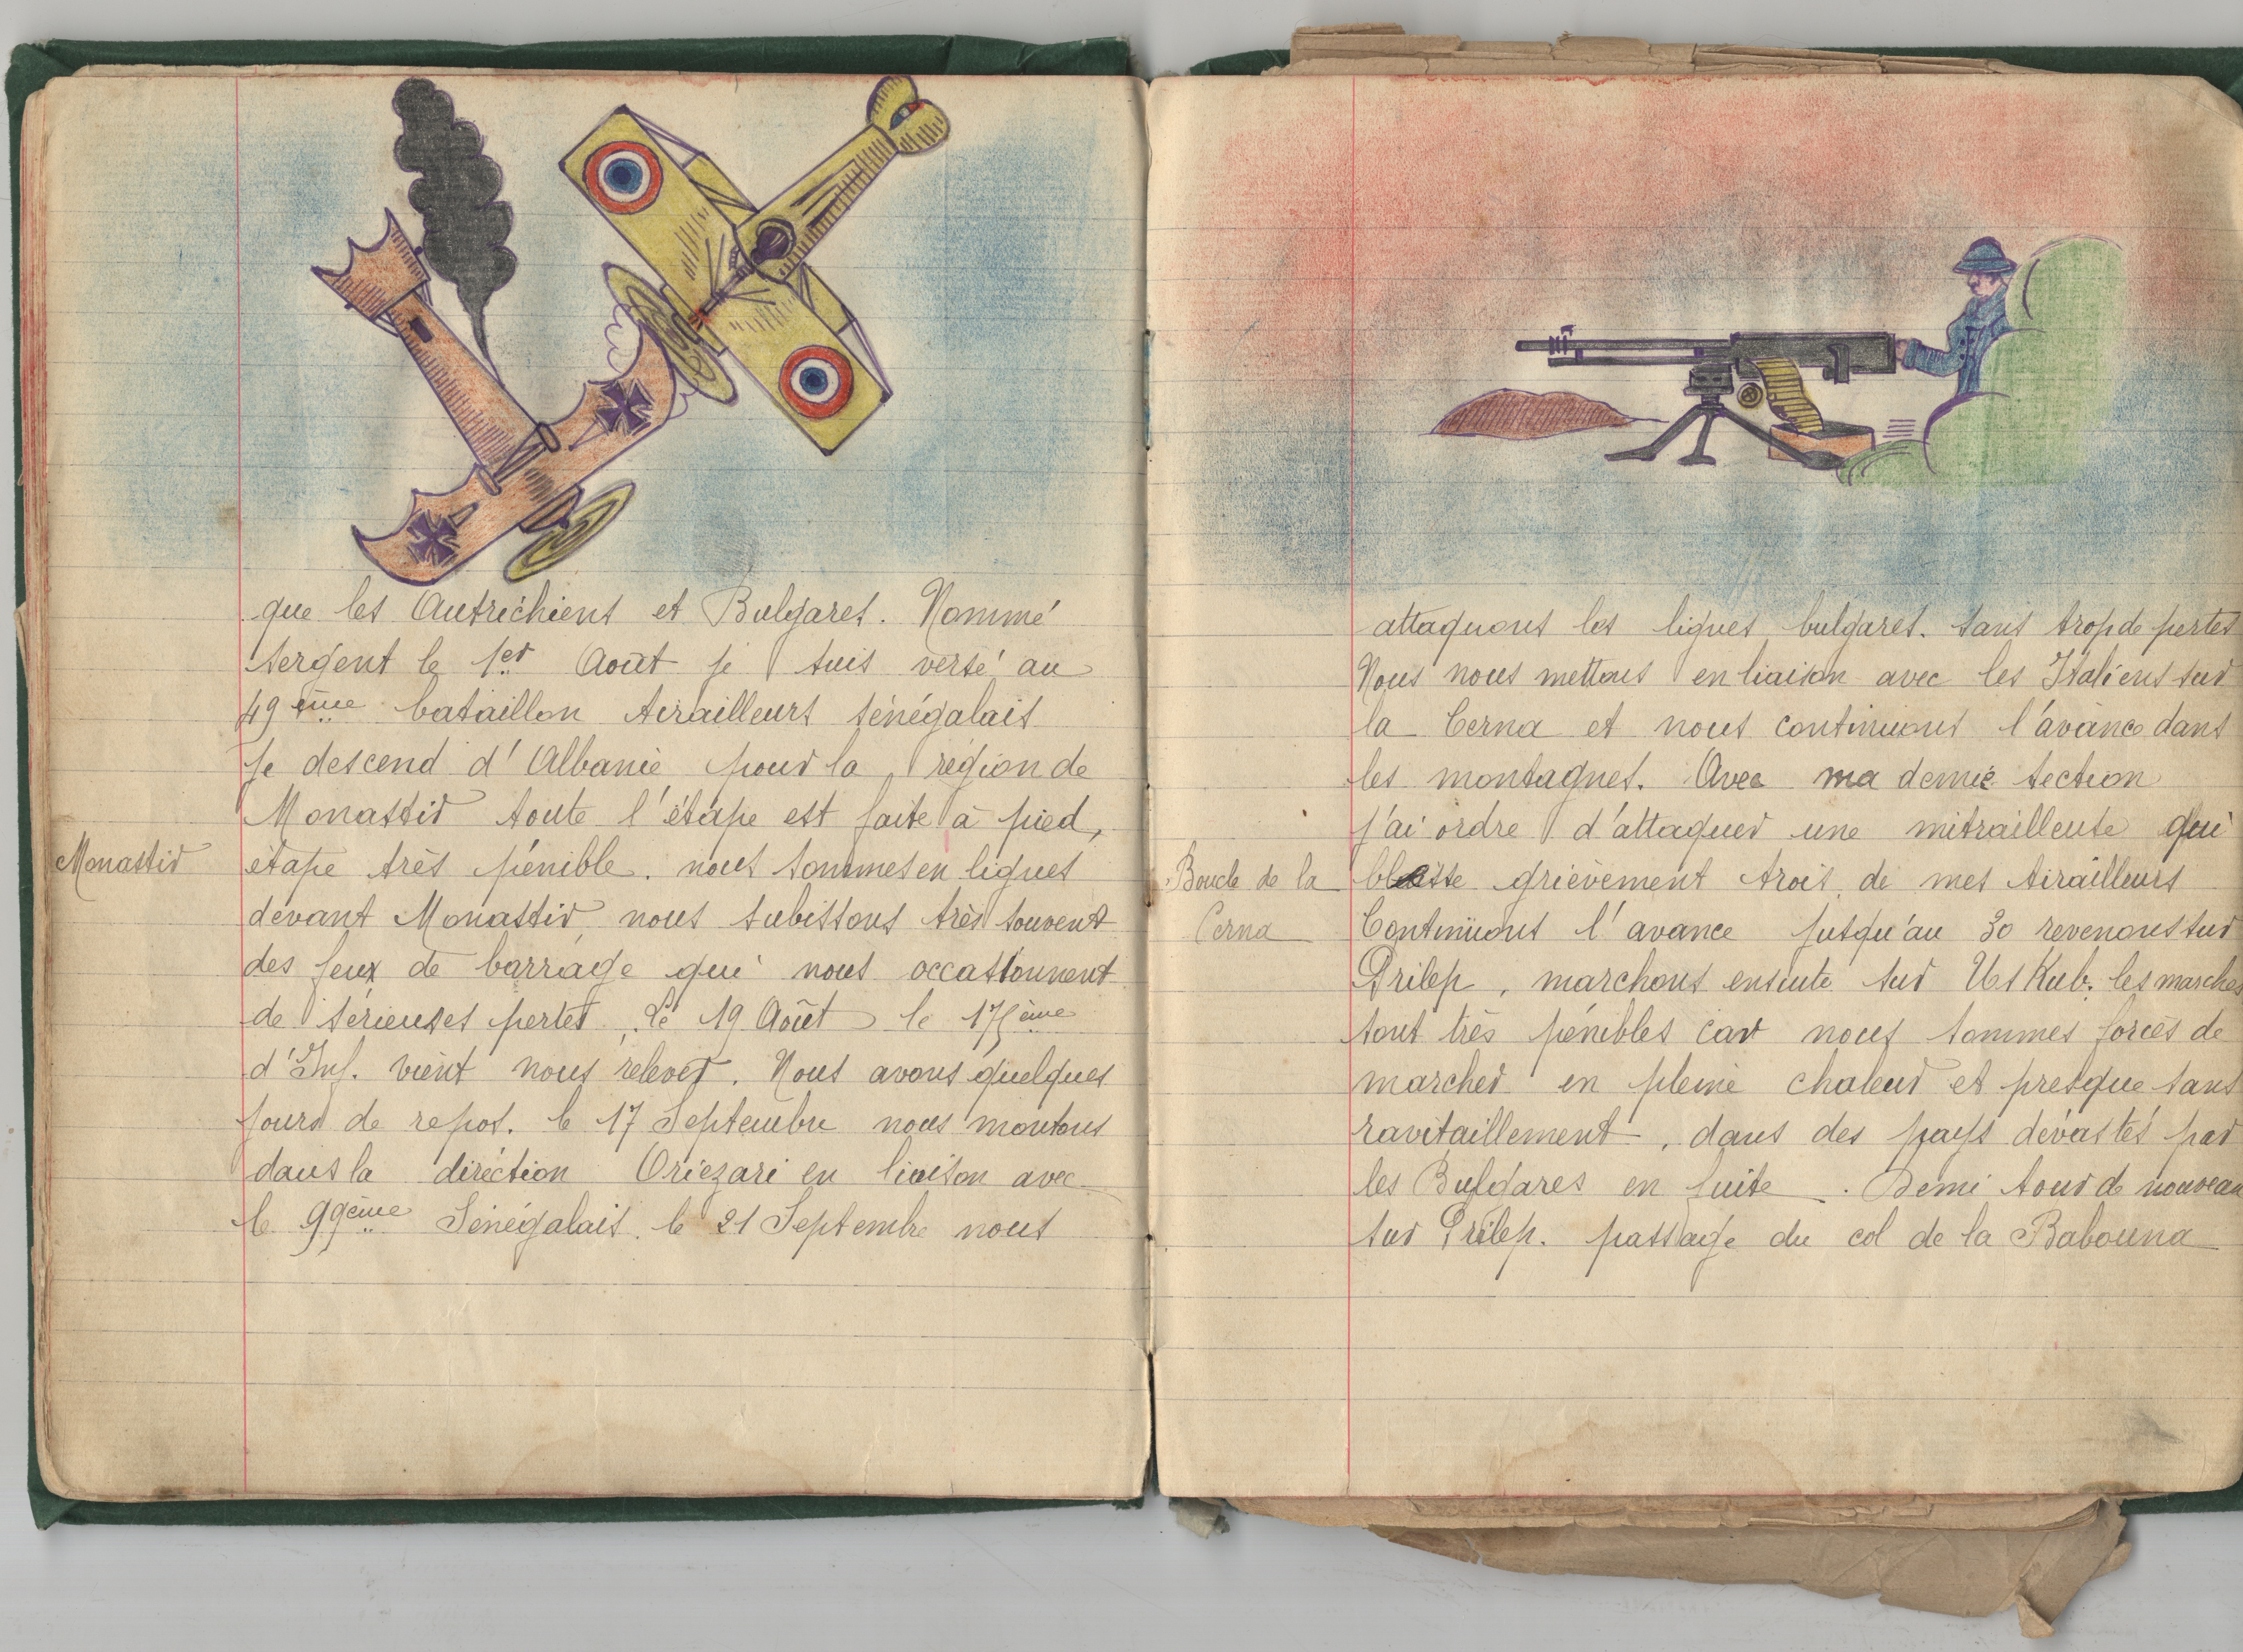 que les Autrichiens et Bulgares. Nommé
sergent le 1er Août je suis versé au
49ème bataillon tirailleurs sénégalais
je descend d'Albanie pour la région de
Monastir toute l'étape est faite à pied,
Monastir
étape très pénible. nous sommes en lignes
devant Monastir, nous subissons très souvent
des feux de barrage qui nous occasionnent
de sérieuses pertes. Le 19 Août le 175ème
d'Inf. vient nous relever. Nous avons quelques
jours de repos. le 17 Septembre nous montons
dans la direction Oriezari en liaison avec
le 99ème Sénégalais. le 21 Septembre nous
attaquons les lignes bulgares. sans trop de pertes
Nous nous mettons en liaison avec les Italiens sur
la Cerna et nous continuons l'avance dans
les montagnes. Avec ma demie section
j'ai ordre d'attaquer une mitrailleuse qui
Boucle de la
Cerna
blesse grièvement trois de mes tirailleurs
Continuons l'avance jusqu'au 30 revenons sur
Prilep, marchons ensuite sur Uskub. les marches
sont très pénibles car nous sommes forcés de
marcher en pleine chaleur et presque sans
ravitaillement, dans des pays dévastés par
les Bulgares en fuite. Demi tour de nouveau
sur Prilep. passage du col de la Babouna